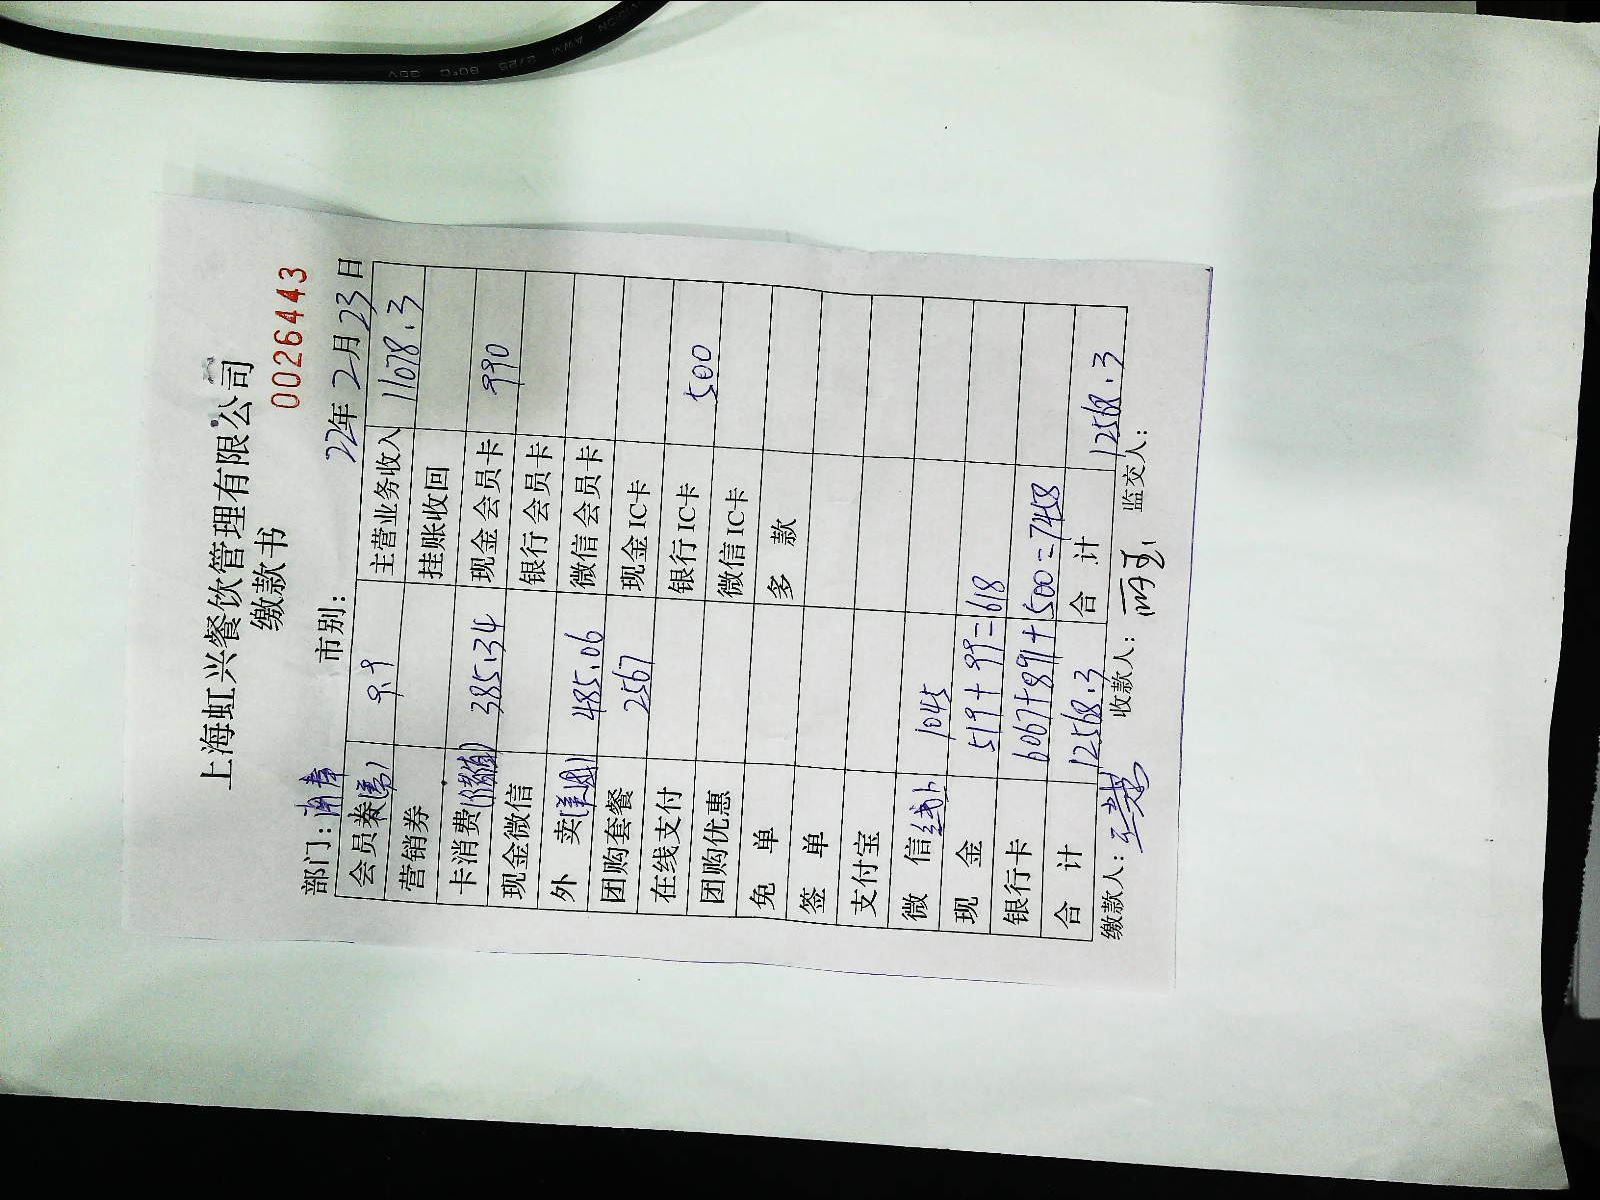 上海虹兴餐饮管理有限公司
缴款书
0026443
部门: 市别: 22年2月23日
会员券 9.9 主营业务收入 11078.3
营销券 挂账收回
卡消费(储值) 385.34 现金会员卡 990
现金微信 银行会员卡
外 卖(美团) 485.06 微信会员卡
团购套餐 2567 现金IC卡
在线支付 银行IC卡 500
团购优惠 微信IC卡
免 单 多 款
签 单
支付宝
微 信(线下) 1045
现 金 519+99=618
银行卡 6067+891+500=7458
合 计 12568.3 合 计 12568.3
缴款人: 收款人: 监交人: